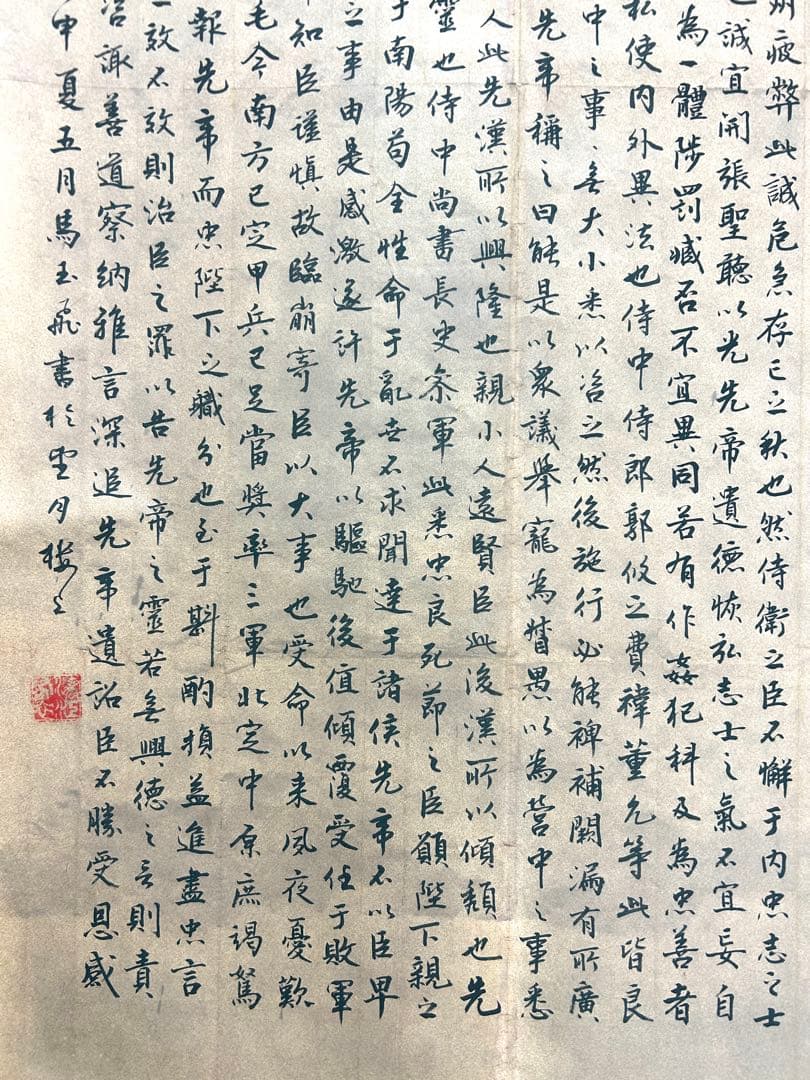 州疲弊此誠危急存亡之秋也然侍衛之臣不懈于内忠志之士
誠宜開張聖聽以光先帝遺德恢弘志士之氣不宜妄自
為一體陟罰臧否不宜異同若有作姦犯科及為忠善者
私使内外異法也侍中侍郎郭攸之費禕董允等此皆良
中之事、無大小悉以咨之然後施行必能裨補闕漏有所廣
先帝稱之曰能是以衆議舉寵為督愚以為營中之事悉
人此先漢所以興隆也親小人遠賢臣此後漢所以傾頹也先
靈也侍中尚書長史參軍此悉忠良死節之臣願陛下親之
于南陽苟全性命于亂世不求聞達于諸侯先帝不以臣卑
之事由是感激遂許先帝以驅馳後值傾覆受任于敗軍
知臣謹慎故臨崩寄臣以大事也受命以来夙夜憂歎
毛今南方已定甲兵已足當獎率三軍北定中原庶竭駑
報先帝而忠陛下之職分也至于斟酌損益進盡忠言
效不效則治臣之罪以告先帝之靈若無興德之言則責
咨諏善道察納雅言深追先帝遺詔臣不勝受恩感
申夏五月馬玉飛書於望月樓上